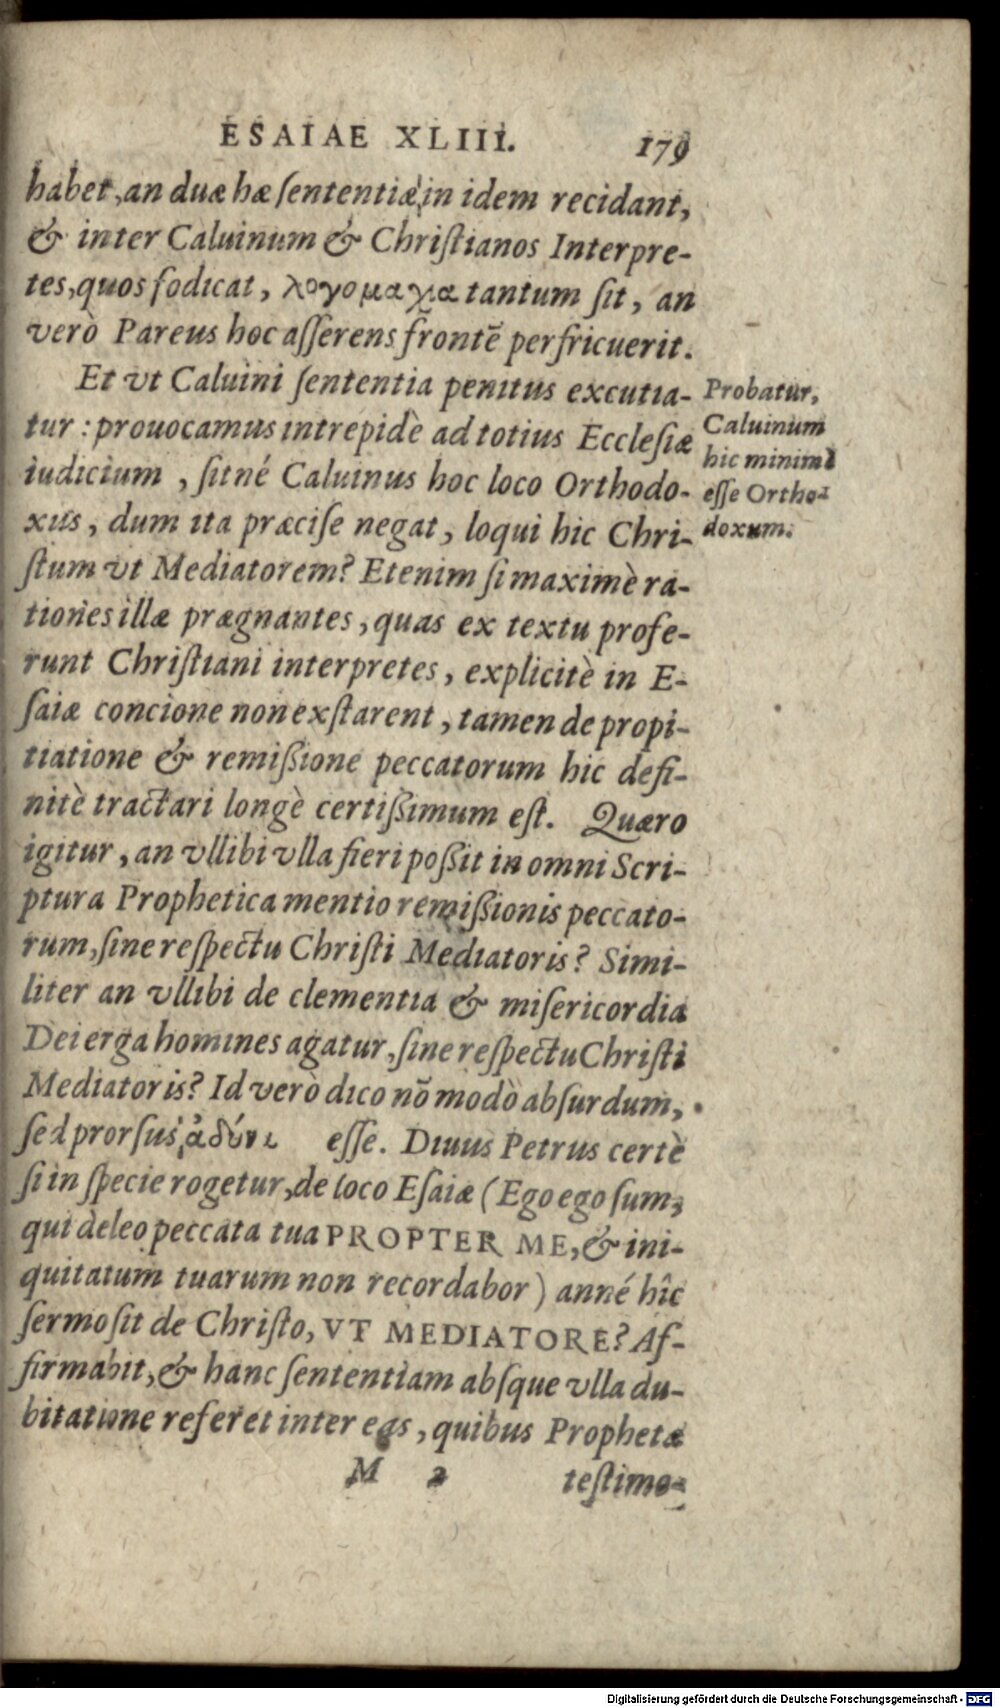 ESAIAE XLIII. 179
habet, an duæ hæ sententiæ in idem recidant,
& inter Caluinum & Christianos Interpre-
tes, quos fodicat, λογομαχια tantum sit, an
verò Pareus hoc asserens frontē perfricuerit.
Et vt Caluini sententia penitus excutia-
tur: prouocamus intrepidè ad totius Ecclesiæ
iudicium, sitné Caluinus hoc loco Orthodo-
xus, dum ita præcise negat, loqui hic Chri-
stum vt Mediatorem? Etenim si maximè ra-
tiones illæ prægnantes, quas ex textu profe-
runt Christiani interpretes, explicitè in E-
saiæ concione non exstarent, tamen de propi-
tiatione & remißione peccatorum hic defi-
nitè tractari longè certißimum est. Quæro
igitur, an vllibi vlla fieri poßit in omni Scri-
ptura Prophetica mentio remißionis peccato-
rum, sine respectu Christi Mediatoris? Simi-
liter an vllibi de clementia & misericordia
Dei erga homines agatur, sine respectu Christi
Mediatoris? Id verò dico nō modò absurdum,
sed prorsus esse. Diuus Petrus certè
si in specie rogetur, de loco Esaiæ (Ego ego sum,
qui deleo peccata tua PROPTER ME, & ini-
quitatum tuarum non recordabor) anné hîc
sermo sit de Christo, VT MEDIATORE? Af-
firmabit, & hanc sententiam absque vlla du-
bitatione referet inter eas, quibus Prophetæ
M 2 testimo-
Probatur,
Caluinum
hic minimè
esse Ortho-
doxum.
Digitalisierung gefördert durch die Deutsche Forschungsgemeinschaft - DFG